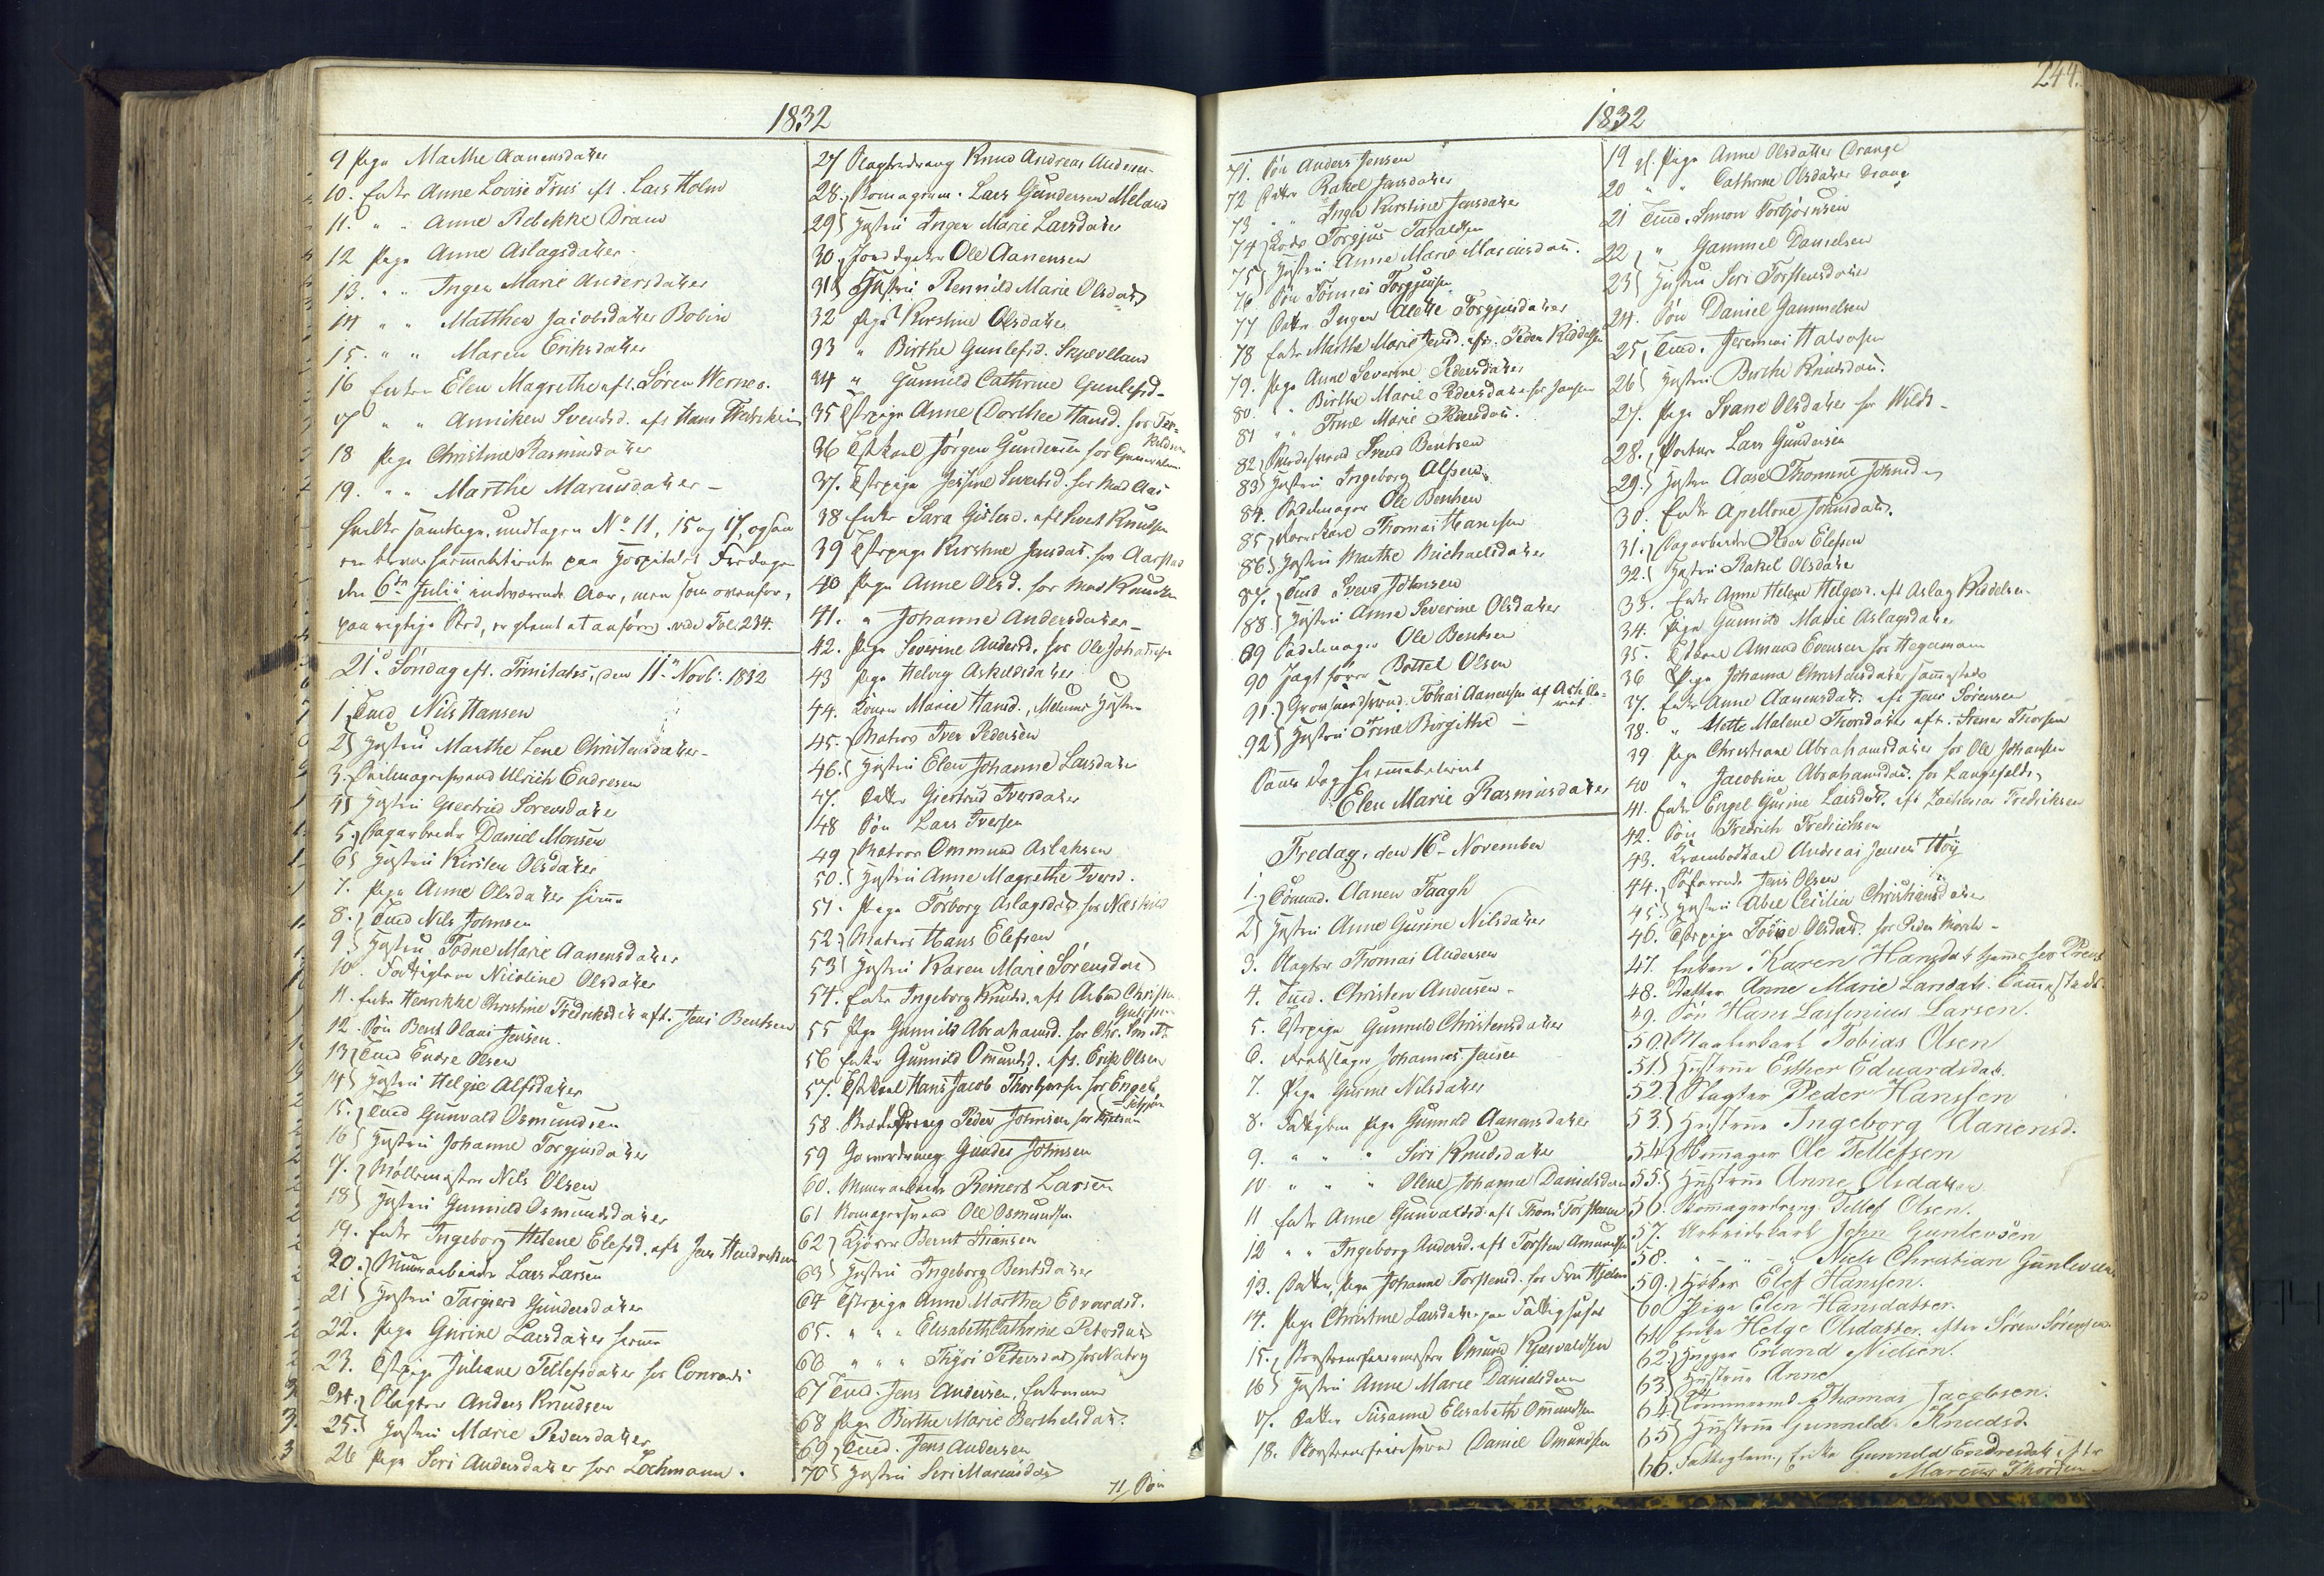 1832
9 Pige Marthe Aanensdatter
10. Enke Anne Lovise Friis eft. Lars Holm
11. " " Anne Rebekke Dram
12 Pige Anne Aslagsdatter
13. " " Inger Marie Andersdatter
14 " " Matthea Jacobsdatter Bobin
15. " " Maren Eriksdatter
16 Enken Elen Magrethe eft. Sören Werner.
17 " " Anniken Svendsd. eft Hans
18 Pige Christine Rasmusdatter
19. " " Marthe Mariusdatter –
hvilke samtlige, undtagen No 11, 15 og 17, ogsaa
ere bleven paa Hospitalet Fredagen
den 6te Julii indeværende Aar, men som ovenfor,
paa rigtige Sted, er glemt at anföres. vide Fol. 234.
21de Söndag eft. Trinitatis, den 11te Novbr. 1832
1. Tmd Nils Hansen
2 Hustru Marthe Lene Christensdatter –
3. Seilmagersvend Ulrich Endresen
4 Hustru Giertrud Sorensdatter
5. Dagarbeider Daniel Monsen
6 Hustru Kirsten Olsdatter
7. Pige Anne Olsdatter hiema
8. Tmd Nils Johnsen
9. Hustru Todne Marie Aanensdatter
10. Fattiglem Nicoline Olsdatter
11. Enke Henrikke Christine Fredriksdatr eft. Jens Bentsen
12. Sön Bent Olaus Jensen.
13 Tmd Endre Olsen
14 Hustru Helgie Alfsdatter
15. Tmd Gunvald Osmundsen
16 Hustru Johanne Torgiusdatter
17. Möllermester Nils Olsen
18 Hustru Gunnild Osmundsdatter
19. Enke Ingeborg Helene Elefsd. eft Jens Hendriksen
20. Muurarbeider Lars Larsen
21 Hustru Targierd Gundersdatter
22. Pige Gurine Larsdatter hiema
23. Tstpige Juliane Tellefsdatter hos Conradi
24. Slagter Anders Knudsen
25. Hustru Marie Pedersdatter
26 Pige Seri Andersdatter hos Lochmann.
27 Slagterdreng Knud Andreas Andersen
28. Skomagerm. Lars Gundersen Meland
29 Hustru Inger Marie Larsdatter
30. Ole Aanensen
31 Hustru Rennild Marie Olsdatr
32 Pige Kirstine Olsdatter
33 " Birthe Gunlefsd. Skjævlland
34 " Gunnild Cathrine Gunlefsd.
35 Tstpige Anne Dorthee Hansd. hos Ter-
kildsen
36 Tstkarl Jörgen Gundersen hos Generalen
37. Tstpige Jessine Sivertsd. hos Mad Aas
38 Enke Sara Gislesd. eft Sivert Knudsen
39 Tstpige Kirstine Jensdatr. hos Aarstad
40 Pige Anne Olsd. hos Mad Knudsen
41. " Johanne Andersdatter –
42. Pige Severine Andersd. hos Ole Johannesen
43 Pige Helvig Askildsdatter
44. Konen Marie Hansd., Mellums Hustru
45. Matros Iver Pedersen
46. Hustru Elen Johanne Larsdatter
47. Datter Giertrud Iversdatter
48 Sön Lars Iversen
49 Matros Ommund Aslaksen
50. Hustru Anne Magrethe Iversd.
51. Pige Torborg Aslagsdatr hos
52. Matros Hans Elefsen
53 Hustru Karen Marie Sörensdatr
54. Enke Ingeborg Knudsd. eft Asbiörn Christen
55 Pige Gunnild Abrahamsd. hos Chr. Smith
56 Enke Gunnild Omundsd. eft. Erik Olsen
57. Tstkarl Hans Jacob Thorbjørnsen hos Engels
58. Peder Johnsen hos
59 Gunder Johnsen
60. Muurarbeider Reinert Larsen
61 Skomagersvend Ole Osmundsen
62 Kjörer Bernt Hansen
63 Hustru Ingeborg Bentsdatter
64 Tstpige Anne Marthea Edvardsd.
65. " " " Elisabeth Cathrine Petersdatr
66 " " " Thyri Petersdatr hos Natvig
67 Tmd. Jens Andersen, Enkemand
68 Pige Birthe Marie Berthelsdatr.
69 Tmd. Jens Andersen
70 Hustru Seri Mariusdatr
71, Sön
1832
244.
71. Sön Anders Jensen
72 Datter Rakel Jensdatter
73 " " Inger Kirstine Jensdatter
74 Lods Torgjus Taraldsen
75 Hustru Anne Marie Mariusdatr.
76 Sön Tönnes Torgjussen
77 Datter Inger Alette Torgjusdatter
78 Enke Marthe Marie Jensd. eft. Peder Reddelsen
79. Pige Anne Severine Pedersdatter
80. " Birthe Marie Pedersdatter hos Jansen
81 " " Trine Marie Pedersdatr.
82 Svend Bentsen
83 Hustru Ingeborg Alfsen
84. Sadelmager Ole Bentsen
85 Thomas Hansen
86 Hustru Marthe Michaelsdatter
87. Tmd Svend Johnsen
88. Hustru Anne Severine Olsdatter
89 Sadelmager Ole Bentsen
90 Jagtförer Bottel Olsen
91. Tobias Aanensen af
92 Hustru Trine Birgithe –
Samme Dag hiemmeberettet
Elen Marie Rasmusdatter
Fredag, den 16de November
1. Tömmd. Aanen Faagh
2 Hustru Anne Gurine Nilsdatter
3. Slagter Thomas Andersen
4. Tmd. Christen Andersen –
5. Tstpige Gunnild Christensdatter
6. Johannes Jensen
7. Pige Gurine Nilsdatter
8. Fattiglem Pige Gunnild Aanensdatter
9. " " " Siri Knudsdatter
10 " " " Olene Johanne Danielsdatter
11 Enke Anne Gunvaldsd. eft Thomas Torstensen
12 " " Ingeborg Andersd. eft Torsten Amundsen
13. Datter, Pige Johanne Torstensd. hos Fru Hjelm
14. Pige Christine Larsdatter paa Fattighuset
15. Skorsteensfeiermester Omund Kjærvaldsen
16 Hustru Anne Marie Danielsdatter
17. Datter Susanne Elisabeth Omundsen
18. Skorsteensfeiersvend Daniel Omundsen
19 gl. Pige Anne Olsdatter Drange
20 " " Cathrine Olsdatter Drange
21 Tmd. Simon Torbjörnsen
22 " Gammel Danielsen
23 Hustru Siri Torstensdatter
24. Sön Daniel Gammelsen
25, Tmd. Jeremias Halvorsen
26 Hustru Birthe Knudsdatr.
27. Pige Svane Olsdatter hos Wilds –
28. Portner Lars Gundersen
29. Hustru Aase Thomine Johnsd.
30. Enke Apellone Johnsdatr.
31. Dagarbeider Peder Elefsen
32. Hustru Rakel Olsdatter
33. Enke Anne Helene Helgesd. eft Aslag Reddelsen
34. Pige Gunnild Marie Aslagsdatter
35. Tstkarl Amund Evensen hos Hegermann
36 Pige Johanne Christensdatter sammesteds
37. Enke Anne Aanensdatr. eft Jens Sörensen
38. " Mette Malene Thorsdatter eft. Stener Thorsen
39 Pige Christiane Abrahamsdatter hos Ole Johansen
40 " Jacobine Abrahamsdatr. hos Langfeldt
41. Enke Engel Gurine Larsdatr. eft Zacharias Fredriksen
42. Sön Fredrich Fredrichsen
43. Krambodkarl Andreas Jensen Höy
44. Söfarende Jens Olsen
45. Hustru Abel Cecilia Christiansdatter
46. Tstpige Tönne Olsdatr. hos Peder Mörch –
47. Enken Karen Hansdatr hjemme hos
48. Datter Anne Marie Larsdatr. Sammesteds
49. Sön Hans Lassenius Larsen.
50. Tobias Olsen
51. Hustrue Esther Eduardsdat.
52. Slagter Peder Hanssen
53. Hustrue Ingeborg Aanensd.
54 Skomager Ole Tellefsen
55. Hustrue Anne Olsdatter
56. Skomagerdreng Tellef Olsen.
57. Arbeidskarl John Gunlevsen
58. " " Niels Christian Gunlevsen
59. Höker Elef Hanssen.
60 Pige Elen Hansdatter.
61 Enke Helge Olsdatter. efter Sören Sörensen
62. Erland Nielsen.
63 Hustrue Anne
64. Tömmermd Thomas Jacobsen.
65 Hustrue Gunnild Knudsd.
66. Fattiglem, Enke Gunnild Endresdatr efter
Marcus Thorsen